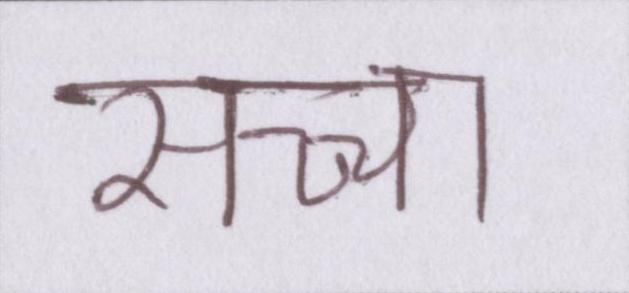 सच्चा